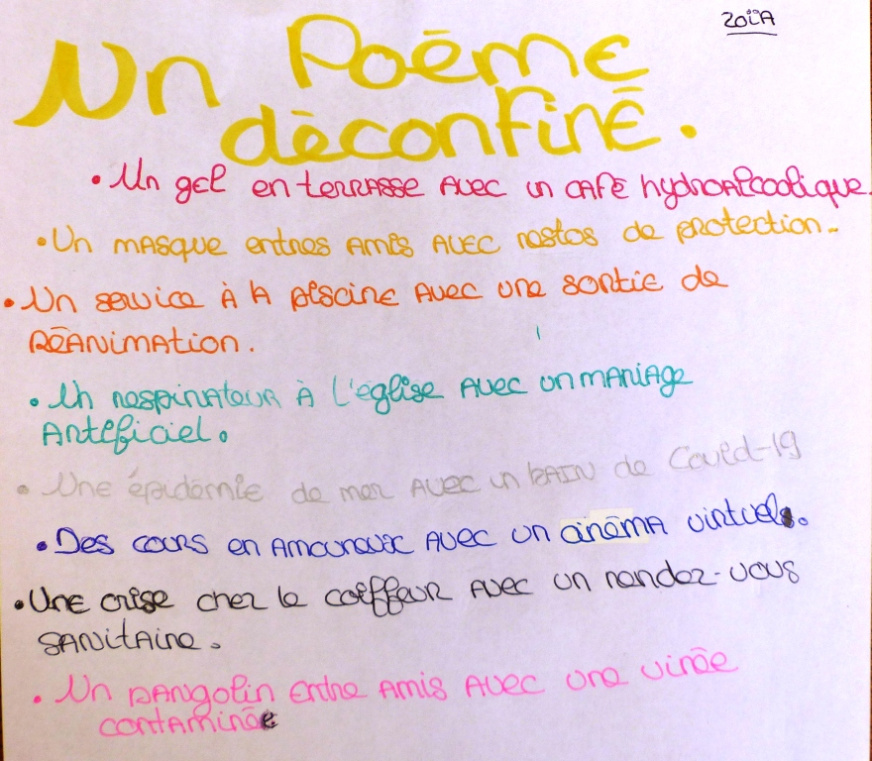 ZOÏA
Un Poème
déconfiné.
• Un gel en terrasse avec un café hydroalcoolique.
• Un masque entres amis avec restos de protection..
• Un service à la piscine avec une sortie de
réanimation.
• Un respirateur à l'église avec un mariage
artificiel.
• Une épidémie de mer avec un bain de Covid-19
• Des cours en amoureux avec un cinéma virtuel.
• Une crise chez le coiffeur avec un rendez-vous
sanitaire.
• Un pangolin entre amis avec une virée
contaminée